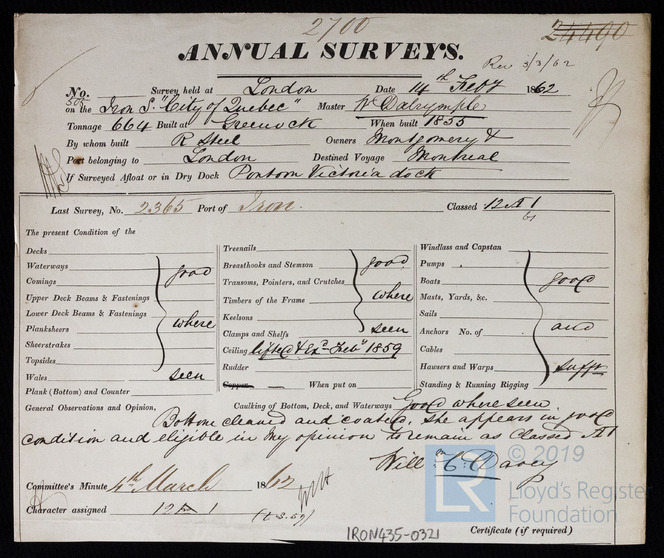 2700
24490
ANNUAL SURVEYS.
Rec 3/3/62
No. 505 Survey held at London Date 14th Feby 1862
on the Iron S. "City of Quebec" Master W Dalrymple
Tonnage 664 Built at Greenock When built 1855
By whom built R Steel Owners Montgomery &
Port belonging to London Destined Voyage Montreal
If Surveyed Afloat or in Dry Dock Pontoon Victoria dock
Last Survey, No. 2365 Port of Iron. Classed 12 A 1
The present Condition of the
Decks
Waterways
Comings
Upper Deck Beams & Fastenings
Lower Deck Beams & Fastenings
Planksheers
Sheerstrakes
Topsides
Wales
good
where
seen
Plank (Bottom) and Counter
Treenails
Breasthooks and Stemson
Transoms, Pointers, and Crutches
Timbers of the Frame
Keelsons
Clamps and Shelfs
good
where
seen
Ceiling lifted & Exd. Feby 1859
Rudder
Copper When put on
Windlass and Capstan
Pumps
Boats
Masts, Yards, &c.
Sails
Anchors No. of
Cables
Hawsers and Warps
good
and
sufft
Standing & Running Rigging
General Observations and Opinion, Caulking of Bottom, Deck, and Waterways Good where seen
Bottom cleaned and coated, She appears in good
condition and eligible in my opinion to remain as Classed A1
Will m C. Darey
Committee's Minute 4th March 1862
Character assigned 12 A 1 (t.s.59)
IRON435-0321
Certificate (if required)
LR
© 2019
Lloyd's Register
Foundation